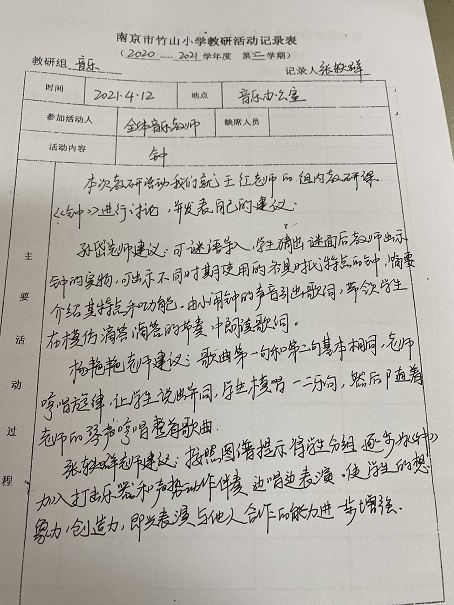 南京市竹山小学教研活动记录表
（2020 — 2021 学年度 第二学期）
教研组 音乐 记录人 张
时间 2021.4.12 地点 音乐办公室
参加活动人 全体音乐教师 缺席人员
活动内容 钟
主要活动过程
本次教研活动我们就王红老师的组内教研课
《钟》进行讨论，并发表自己的建议：
孙岱老师建议：可谜语导入，学生猜出谜面后教师出示
钟的实物，可出示不同时期使用的各具时代特点的钟，简要
介绍其特点和功能。由小闹钟的声音引出歌词，带领学生
在模仿滴答滴答的节奏中朗读歌词。
杨艳艳老师建议：歌曲第一句和第二句基本相同，老师
哼唱旋律，让学生说出异同，学生模唱一二乐句，然后随着
老师的琴声哼唱整首歌曲。
张老师建议：按照图谱提示将学生分组逐步为《钟》
加入打击乐器和声势动作伴奏，边唱边表演。使学生的想
象力，创造力，即兴表演与他人合作的能力进一步增强.